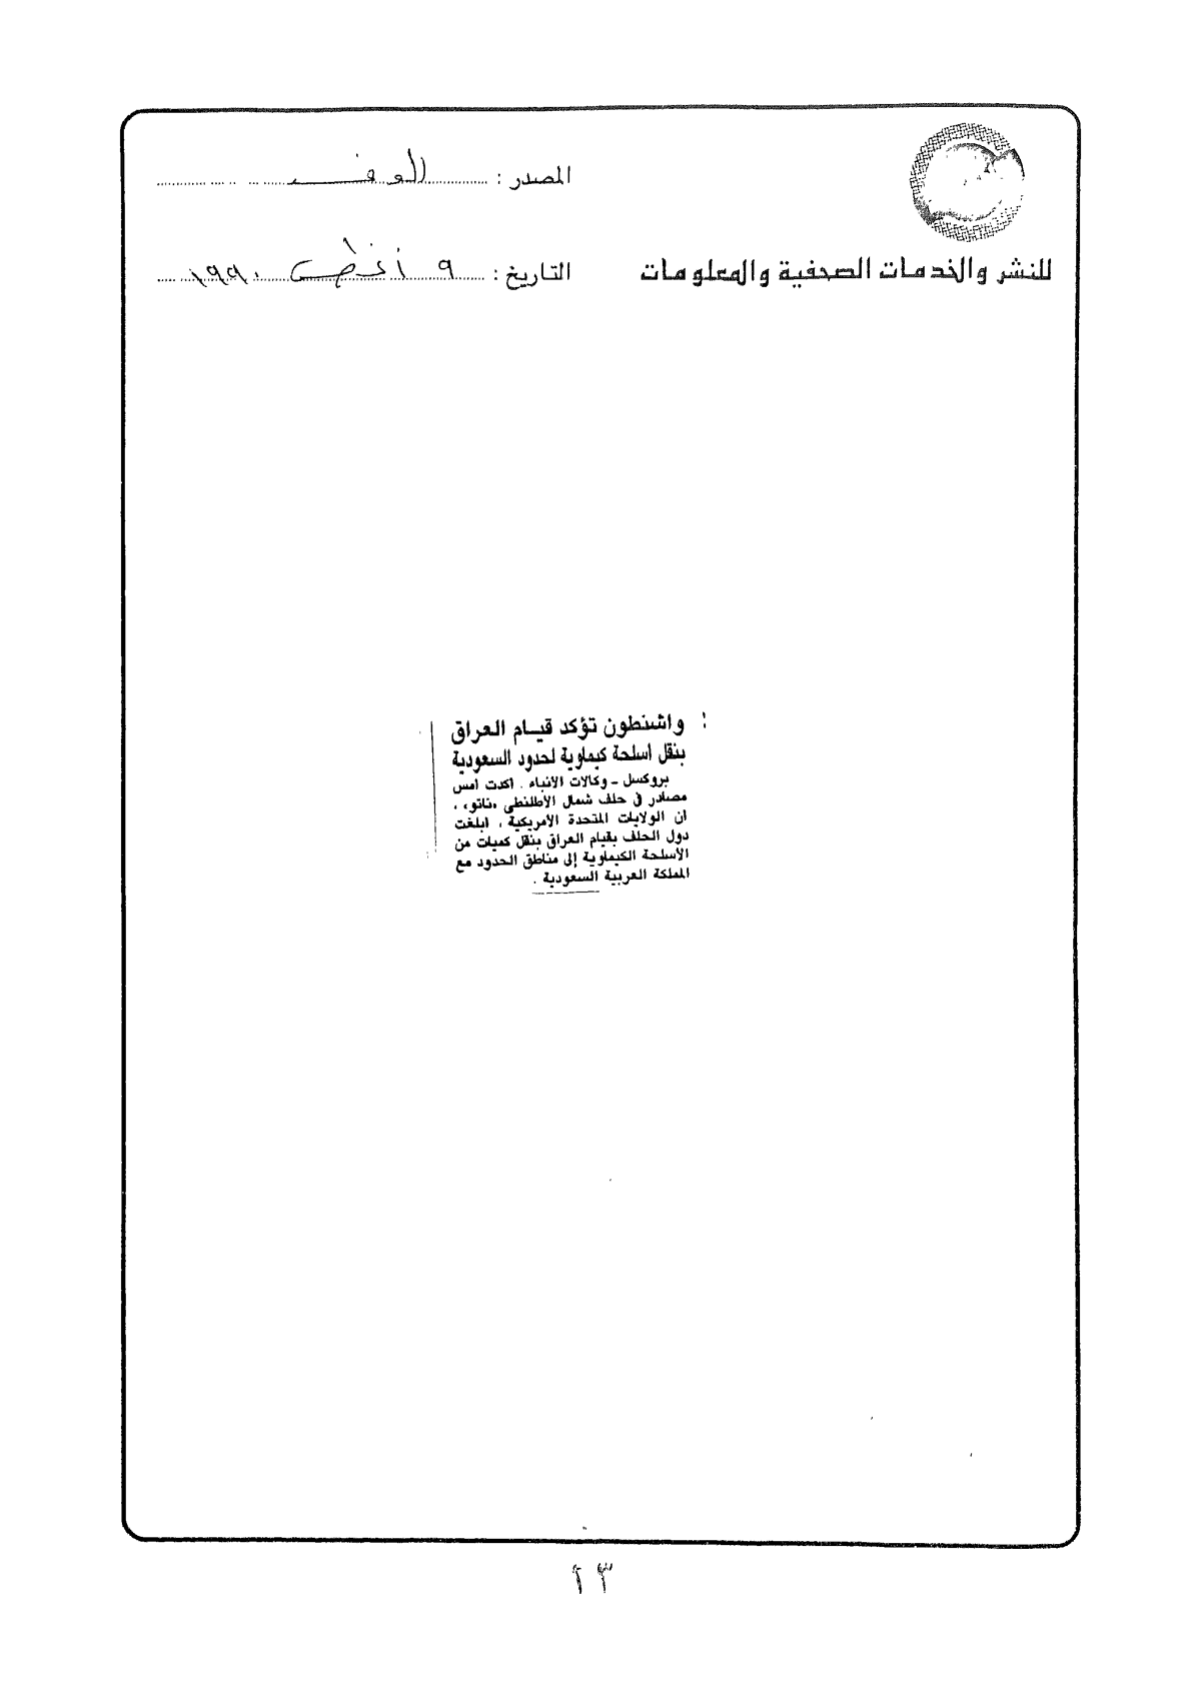 المصدر : الوفد
للنشر والخدمات الصحفية والمعلومات
التاريخ : ٩ أغسطس ١٩٩٠
واشنطون تؤكد قيام العراق
بنقل اسلحة كيماوية لحدود السعودية
بروكسل - وكالات الأنباء . اكدت امس
مصادر في حلف شمال الأطلنطى «ناتو» ،
ان الولايات المتحدة الأمريكية ، ابلغت
دول الحلف بقيام العراق بنقل كميات من
الأسلحة الكيماوية إلى مناطق الحدود مع
المملكة العربية السعودية .
١٣